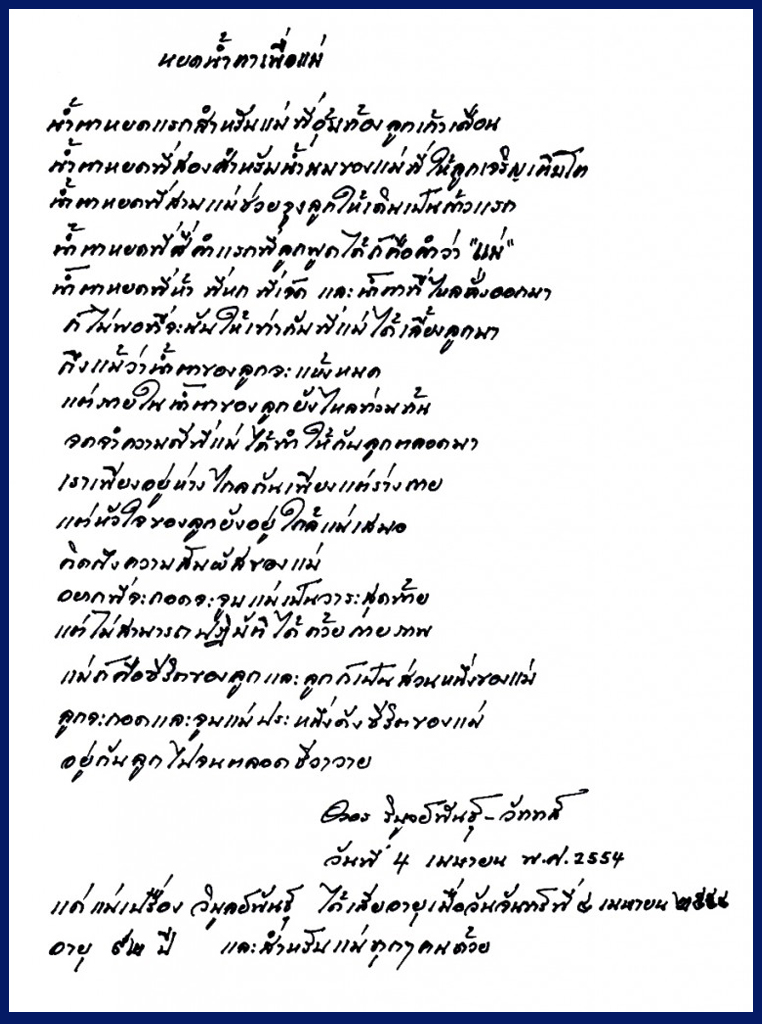 หยดน้ำตาเพื่อแม่
น้ำตาหยดแรกสำหรับแม่ที่อุ้มท้องลูกเก้าเดือน
น้ำตาหยดที่สองสำหรับน้ำนมของแม่ที่ให้ลูกเจริญเติบโต
น้ำตาหยดที่สามแม่ช่วยจูงลูกให้เดินเป็นก้าวแรก
น้ำตาหยดที่สี่คำแรกที่ลูกพูดได้ก็คือคำว่า "แม่"
น้ำตาหยดที่ห้า ที่หก ที่เจ็ด และน้ำตาที่ไหลหลั่งออกมา
ก็ไม่พอที่จะนับให้เท่ากับที่แม่ได้เลี้ยงลูกมา
ถึงแม้ว่าน้ำตาของลูกจะแห้งหมด
แต่ภายในน้ำตาของลูกยังไหลท่วมท้น
จดจำความดีที่แม่ได้ทำให้กับลูกตลอดมา
เราเพียงอยู่ห่างไกลกันเพียงแต่ร่างกาย
แต่หัวใจของลูกยังอยู่ใกล้แม่เสมอ
คิดถึงความสัมผัสของแม่
อยากที่จะกอดจะจูบแม่เป็นวาระสุดท้าย
แต่ไม่สามารถปฏิบัติได้ด้วยกายภาพ
แม่ก็คือชีวิตของลูกและลูกก็เป็นส่วนหนึ่งของแม่
ลูกจะกอดและจูบแม่ประหนึ่งดังชีวิตของแม่
อยู่กับลูกไปจนตลอดชีวาวาย
วิบูลย์พันธุ์-วัททส์
วันที่ 4 เมษายน พ.ศ. 2554
แด่แม่เปรื่อง วิบูลย์พันธุ์ ได้เสียอายุเมื่อวันจันทร์ที่ ๔ เมษายน ๒๕๕๔
อายุ ๙๒ ปี และสำหรับแม่ทุกๆคนด้วย